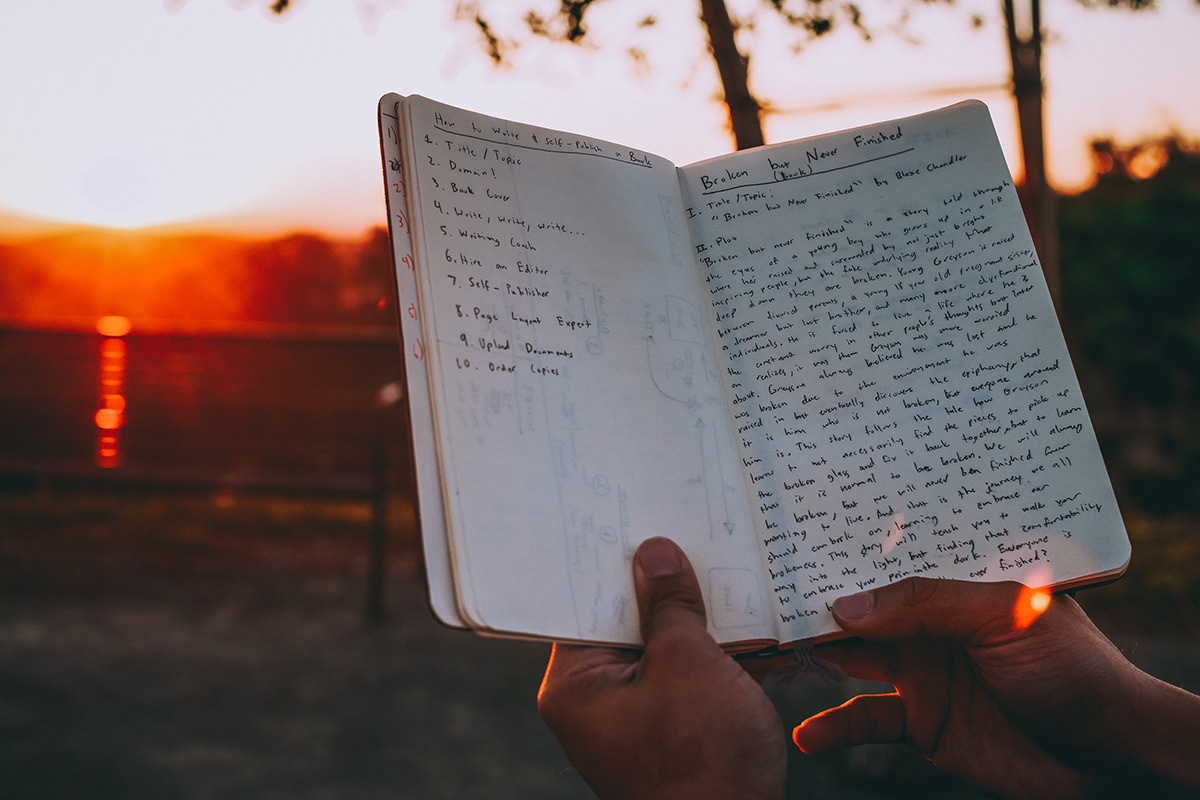 How to Write & Self-Publish a Book
1. Title/Topic
2. Domain!
3. Book Cover
4. Write, Write, Write...
5. Writing Coach
6. Hire an Editor
7. Self-Publisher
8. Page Layout Expert
9. Upload Documents
10. Order Copies
1)
2)
3)
5)
6)
Broken but Never Finished
(Book)
I. Title/Topic:
"Broken but Never Finished" By Blaze Chandler
II. Plot
Broken but never finished" is a story told through
the eyes of a young boy who grows up in a
where hes raised and surrounded by not just bright
inspiring people, but the fake underlying reality that
deep down they are broken. Young Greyson is raised
between divorced parents, a young 15 year old pregnant sister,
a dreamer but lost brother, and many more dysfunctional
individuals. He is forced to live a life where he
the constant worry in other people's thoughts but later
on realizes, it was them Greyson was more worried
about. Greyson always believed he was lost and he
was broken due to the environment he was
raised in but eventually discovers the epiphany, that
it is him who is not broken, but everyone around
him is. This story follows the tale how Greyson
learns to not necessarily find the pieces to pick up
the broken glass and fix it back together, but to learn
that it is normal to be broken. We will always
be broken, but we will never been finished from
wanting to live. And this is the journey we all
should embark on, learning to embrace our
brokeness. This story will teach you to walk your
way into the light, but finding that comfortability
to embrace your pain in the dark. Everyone is
broken ever finished?